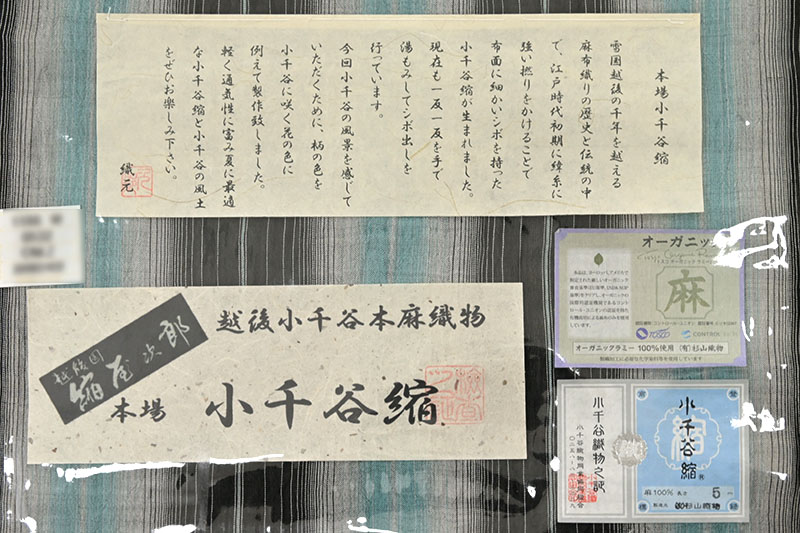 本場小千谷縮
雪国越後の千年を越える
麻布織りの歴史と伝統の中
で、江戸時代初期に緯糸に
強い撚りをかけることで
布面に細かいシボを持った
小千谷縮が生まれました。
現在も一反一反を手で
湯もみしてシボ出しを
行っています。
今回小千谷の風景を感じて
いただくために、柄の色を
小千谷に咲く花の色に
例えて製作致しました。
軽く通気性に富み夏に最適
な小千谷縮と小千谷の風土
をぜひお楽しみ下さい。
織元
越後小千谷本麻織物
越後国
縮屋次郎
本場
小千谷縮
オーガニック
麻
TOSCO
CONTROL
オーガニックラミー 100%使用 (有)杉山織物
小千谷縮
麻100% 長さ 5
杉山織物
小千谷織物之証
小千谷織物同業協同組合